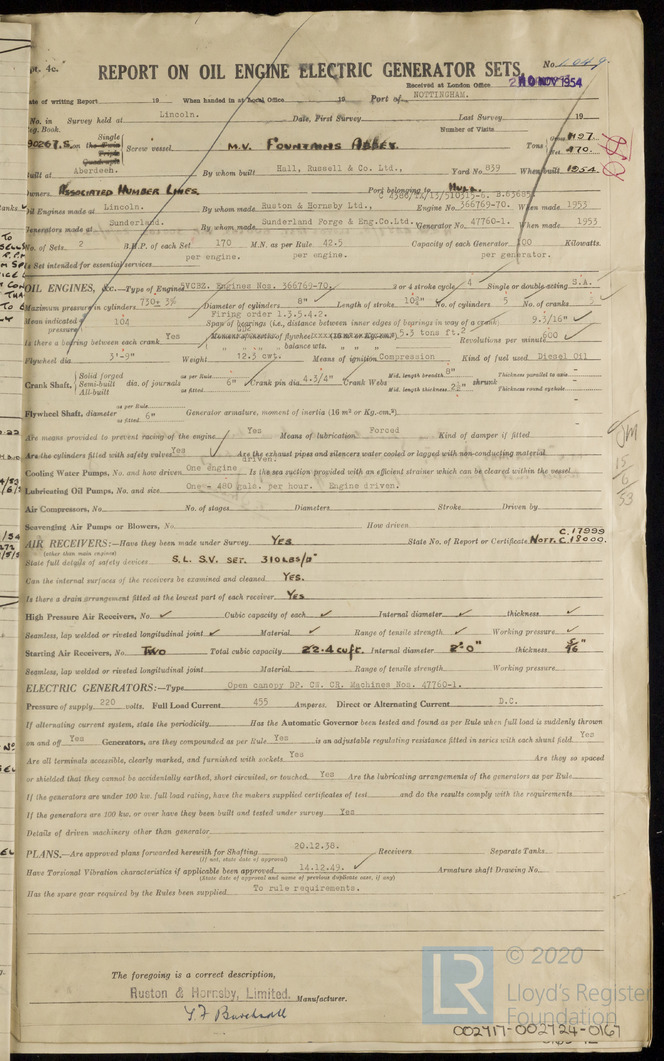 pt. 4c.
REPORT ON OIL ENGINE ELECTRIC GENERATOR SETS.
No.
Received at London Office
NOV 1954
ate of writing Report 19 When handed in at Local Office 19 Port of NOTTINGHAM.
No. in Survey held at Lincoln. Date, First Survey Last Survey 19
Reg. Book. Number of Visits
90267 S.S. on the Single Twin Triple Quadruple Screw vessel. M.V. FOUNTAINS ABBEY. Tons Gross 1197 Net 470
Built at Aberdeen. By whom built Hall, Russell & Co. Ltd., Yard No. 839 When built 1954
Owners ASSOCIATED HUMBER LINES. Port belonging to HULL.
Oil Engines made at Lincoln. By whom made Ruston & Hornsby Ltd., Engine No. 366769-70. When made 1953
Generators made at Sunderland. By whom made Sunderland Forge & Eng.Co.Ltd., Generator No. 47760-1. When made 1953
No. of Sets 2 B.H.P. of each Set 170 M.N. as per Rule 42.5 Capacity of each Generator 100 Kilowatts.
per engine. per engine. per generator.
Is Set intended for essential services
OIL ENGINES, &c.—Type of Engines 5VCBZ. Engines Nos. 366769-70. 2 or 4 stroke cycle 4 Single or double acting S.A.
Maximum pressure in cylinders 730± 3% Diameter of cylinders 8" Length of stroke 10¾" No. of cylinders 5 No. of cranks 5
Firing order 1.3.5.4.2.
Mean indicated pressure 104 Span of bearings (i.e., distance between inner edges of bearings in way of a crank) 9.3/16"
Is there a bearing between each crank Yes Moment of inertia of flywheel (16 m² or Kg.-cm.²) 5.3 tons ft.² Revolutions per minute 600
" " " balance wts. " " "
Flywheel dia. 3'-9" Weight 12.3 cwt. Means of ignition Compression Kind of fuel used Diesel Oil
Crank Shaft, Solid forged Semi-built All-built dia. of journals as per Rule as fitted 6" Crank pin dia. 4.3/4" Crank Webs Mid. length breadth 8" Mid. length thickness 2½" shrunk Thickness parallel to axis Thickness round eyehole
Flywheel Shaft, diameter as per Rule as fitted 6" Generator armature, moment of inertia (16 m² or Kg.-cm.²)
Are means provided to prevent racing of the engine Yes Means of lubrication Forced Kind of damper if fitted
Are the cylinders fitted with safety valves Yes Are the exhaust pipes and silencers water cooled or lagged with non-conducting material
Cooling Water Pumps, No. and how driven One engine driven. Is the sea suction provided with an efficient strainer which can be cleared within the vessel
Lubricating Oil Pumps, No. and size One - 480 gals. per hour. Engine driven.
Air Compressors, No. No. of stages Diameters Stroke Driven by
Scavenging Air Pumps or Blowers, No. How driven
C.17999
AIR RECEIVERS:—Have they been made under Survey YES State No. of Report or Certificate NOTT. C.18000.
(other than main engines)
State full details of safety devices S.L. S.V. SET. 310LBS/□"
Can the internal surfaces of the receivers be examined and cleaned YES.
Is there a drain arrangement fitted at the lowest part of each receiver YES
High Pressure Air Receivers, No. ✓ Cubic capacity of each ✓ Internal diameter ✓ thickness ✓
Seamless, lap welded or riveted longitudinal joint ✓ Material ✓ Range of tensile strength ✓ Working pressure ✓
Starting Air Receivers, No. TWO Total cubic capacity 22.4 cu ft. Internal diameter 2'0" thickness 5/16"
Seamless, lap welded or riveted longitudinal joint Material Range of tensile strength Working pressure
ELECTRIC GENERATORS:—Type Open canopy DP. CW. CR. Machines Nos. 47760-1.
Pressure of supply 220 volts. Full Load Current 455 Amperes. Direct or Alternating Current D.C.
If alternating current system, state the periodicity Has the Automatic Governor been tested and found as per Rule when full load is suddenly thrown
on and off Yes Generators, are they compounded as per Rule Yes is an adjustable regulating resistance fitted in series with each shunt field Yes
Are all terminals accessible, clearly marked, and furnished with sockets Yes Are they so spaced
or shielded that they cannot be accidentally earthed, short circuited, or touched Yes Are the lubricating arrangements of the generators as per Rule
If the generators are under 100 kw. full load rating, have the makers supplied certificates of test and do the results comply with the requirements
If the generators are 100 kw. or over have they been built and tested under survey Yes
Details of driven machinery other than generator
PLANS.—Are approved plans forwarded herewith for Shafting 20.12.38. Receivers Separate Tanks
(If not, state date of approval)
Have Torsional Vibration characteristics if applicable been approved 14.12.49. ✓ Armature shaft Drawing No.
(State date of approval and name of previous duplicate case, if any)
Has the spare gear required by the Rules been supplied To rule requirements.
The foregoing is a correct description,
Ruston & Hornsby, Limited. Manufacturer.
JM
15
6
53
LR
© 2020
Lloyd's Register
Foundation
002717-002724-0167